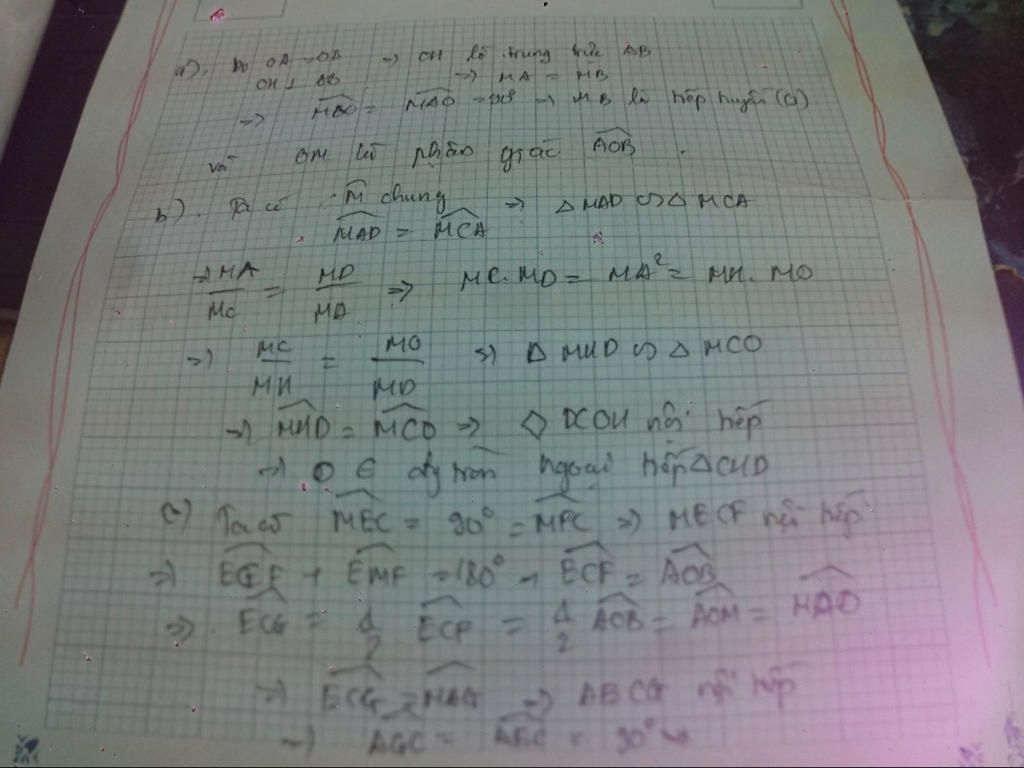 a). Do OA = OB => OH là trung trực AB
OH ⊥ AB => MA = MB
=> MBO = MAO = 90° => MB là tiếp tuyến (O)
và OM là phân giác AOB.
b). Ta có M chung => △ MAD ∽ △ MCA
MAD = MCA
=> MA/MC = MD/MA => MC.MD = MA² = MH.MO
=> MC/MH = MO/MD => △ MHD ∽ △ MCO
=> MHD = MCO => ◇ DCOH nội tiếp
=> O ∈ đường tròn ngoại tiếp △CHD
c) Ta có MEC = 90° = MFC => MECF nội tiếp
=> ECF + EMF = 180° → ECF = AOB
=> ECG = 1/2 ECF = 1/2 AOB = AOM = MAG
=> ECG = MAG => AECG nội tiếp
=> AGC = AEC = 90°